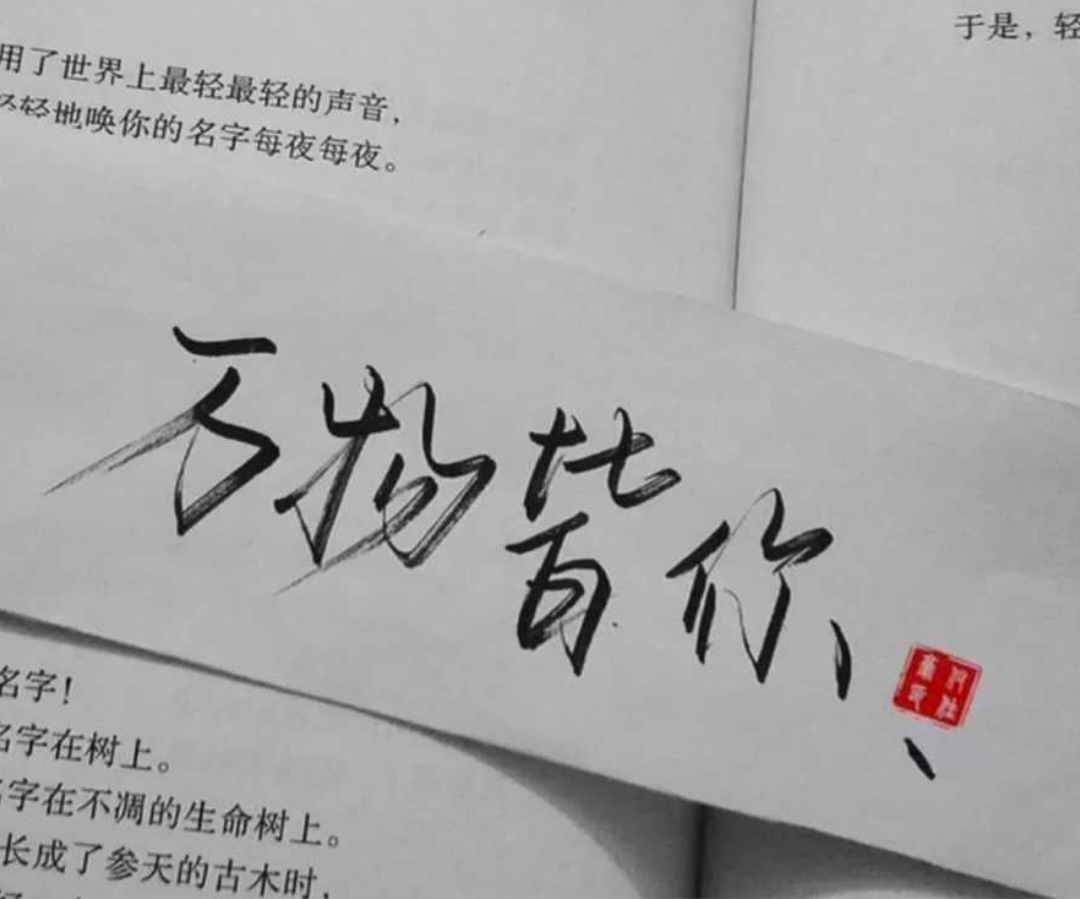 用了世界上最轻最轻的声音，
轻轻地唤你的名字每夜每夜。
于是，轻
万物皆你、
名字！
名字在树上。
名字在不凋的生命树上。
长成了参天的古木时，